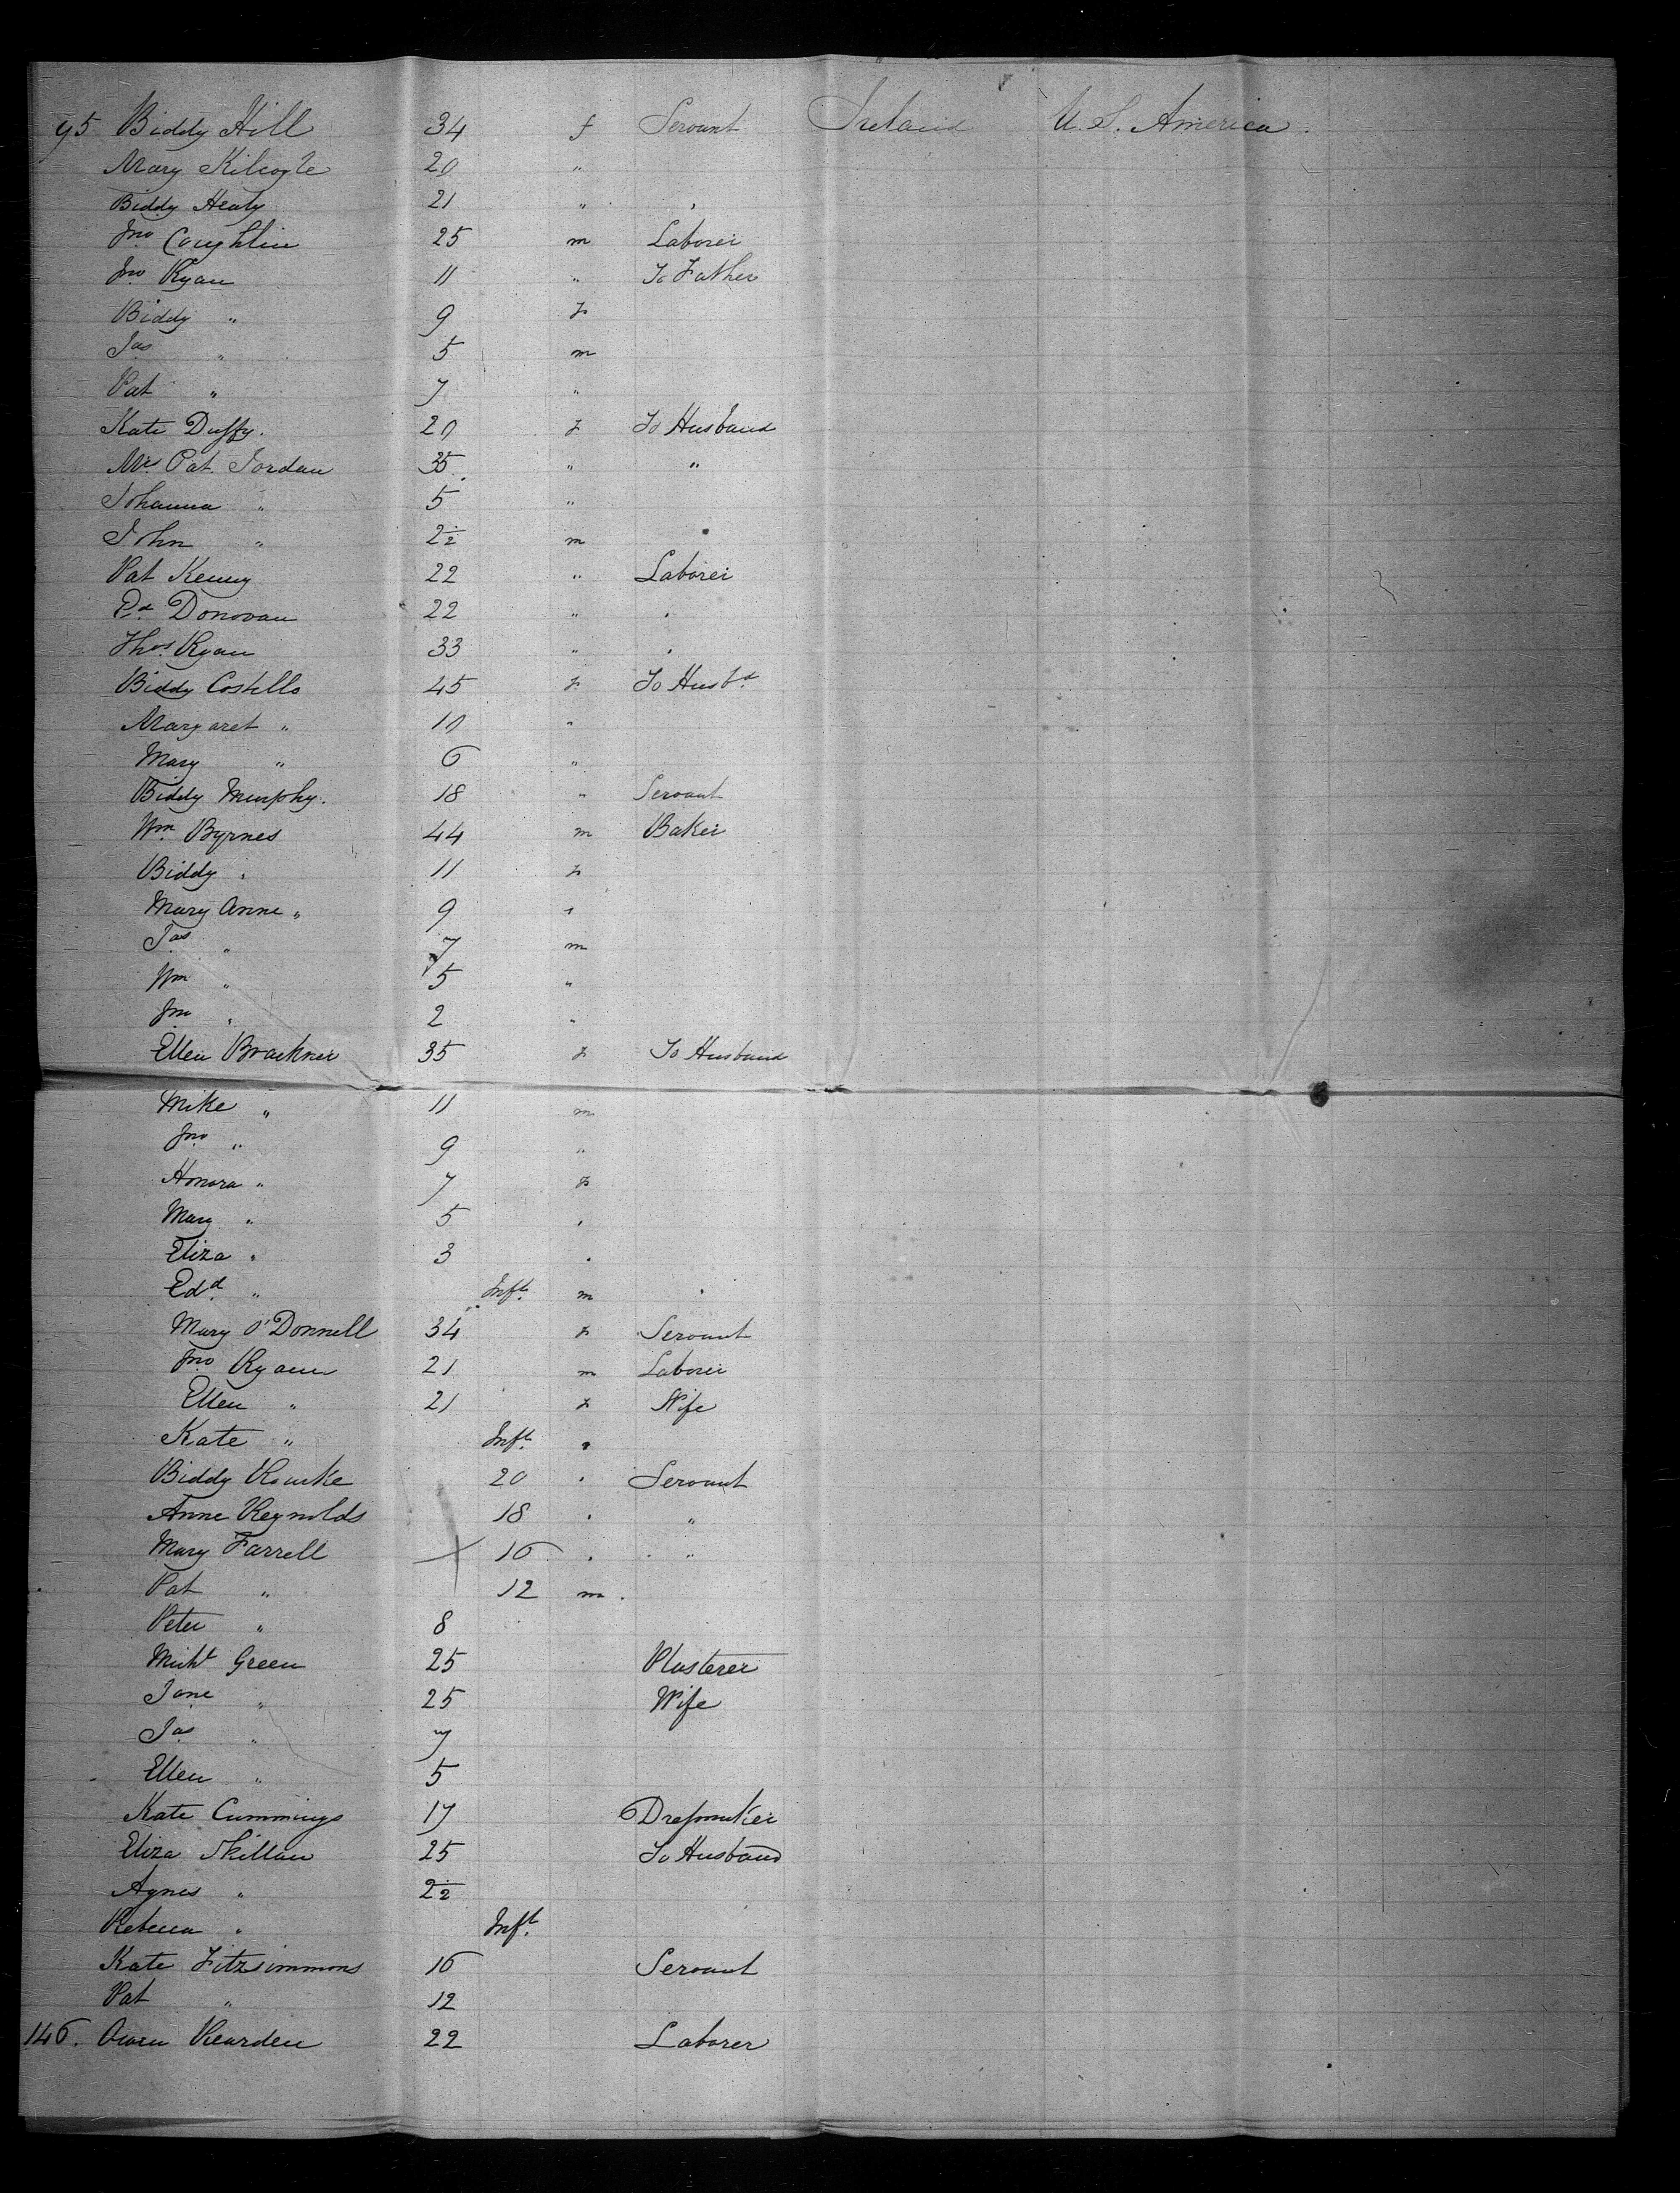 95 Biddy Hill 34 f Servant Ireland U. S. America.
Mary Kilcogle 20 "
Biddy Healy 21 " "
Jno Coughlin 25 m Laborer
Jno Ryan 11 " To Father
Biddy " 9 f
Jas " 5 m
Pat " 7 "
Kate Duffy. 20 f To Husband
Mrs Pat. Jordan 35 " "
Johanna " 5 "
John " 2½ m
Pat Kenny 22 " Laborer
Ed Donovan 22 " "
Thos Ryan 33 " "
Biddy Costello 45 f To Husbd
Margaret " 10 "
Mary " 6 "
Biddy Murphy. 18 " Servant
Wm Byrnes 44 m Baker
Biddy " 11 f
Mary Anne " 9 "
Jas " 7 m
Wm " 5 "
Jno " 2 "
Ellen Brackner 35 f To Husband
Mike " 11 m
Jno " 9 "
Honora " 7 f
Mary " 5 "
Eliza " 3 "
Edd " Inft. m
Mary O'Donnell 34 f Servant
Jno Ryan 21 m Laborer
Ellen " 21 f Wife
Kate " Inft. "
Biddy Rourke 20 " Servant
Anne Reynolds 18 " "
Mary Farrell 16 " "
Pat " 12 m
Peter " 8
Michl Green 25 Plasterer
Jane " 25 Wife
Jas " 7
Ellen " 5
Kate Cummings 17 Dressmaker
Eliza Skillan 25 To Husband
Agnes " 2½
Rebecca " Inft.
Kate Fitzsimmons 16 Servant
Pat " 12
146. Owen Rearden 22 Laborer